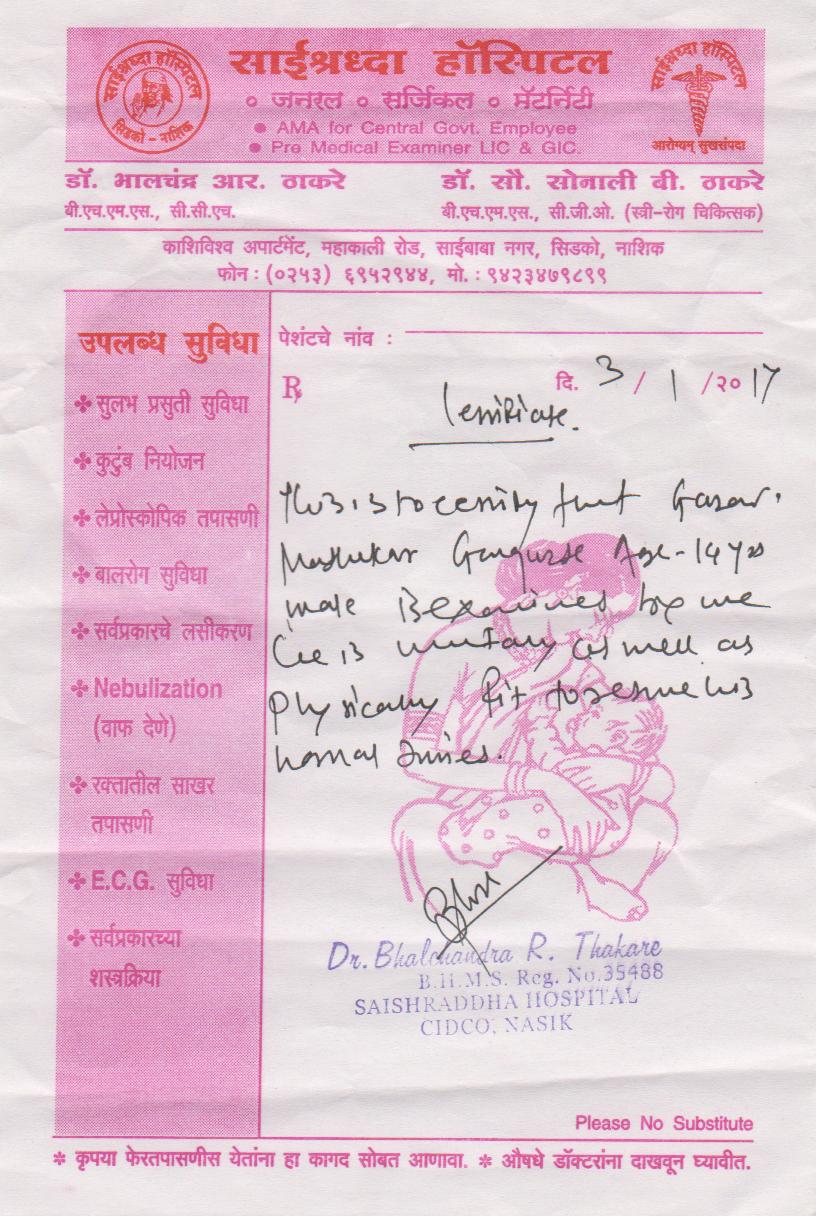 साईश्रध्दा हॉस्पिटल
सिडको - नाशिक
साईश्रध्दा हॉस्पिटल
० जनरल ० सर्जिकल ० मॅटर्निटी
● AMA for Central Govt. Employee
● Pre Medical Examiner LIC & GIC.
साईश्रध्दा हॉस्पिटल
आरोग्यम् सुखसंपदा
डॉ. भालचंद्र आर. ठाकरे
बी.एच.एम.एस., सी.सी.एच.
डॉ. सौ. सोनाली बी. ठाकरे
बी.एच.एम.एस., सी.जी.ओ. (स्त्री-रोग चिकित्सक)
काशिविश्व अपार्टमेंट, महाकाली रोड, साईबाबा नगर, सिडको, नाशिक
फोन : (०२५३) ६९५२९४४, मो. : ९४२३४७९८९९
उपलब्ध सुविधा
✤ सुलभ प्रसुती सुविधा
✤ कुटुंब नियोजन
✤ लेप्रोस्कोपिक तपासणी
✤ बालरोग सुविधा
✤ सर्वप्रकारचे लसीकरण
✤ Nebulization
(वाफ देणे)
✤ रक्तातील साखर
तपासणी
✤ E.C.G. सुविधा
✤ सर्वप्रकारच्या
शस्त्रक्रिया
पेशंटचे नांव :
℞
दि. 3 / 1 / २० 17
Certificate.
This is to certify that
Madhukar Gangurde Age - 14 yrs
male is examined by me
He is mentaly as well as
physically fit to resume his
normal duties.
Dr. Bhalchandra R. Thakare
B.H.M.S. Reg. No. 35488
SAISHRADDHA HOSPITAL
CIDCO, NASIK
Please No Substitute
* कृपया फेरतपासणीस येतांना हा कागद सोबत आणावा. * औषधे डॉक्टरांना दाखवून घ्यावीत.